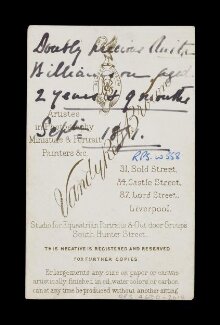 Doubly precious
William
aged
2 years & 9 months
Sepr. 187
Vandyke & Brown
Artistes
in Photography
Miniature & Portrait
Painters &c.
RPS.W558
31, Bold Street,
34, Castle Street,
87, Lord Street,
Liverpool.
Studio for Equestrian Portraits & Out-door Groups
South Hunter Street.
THIS NEGATIVE IS REGISTERED AND RESERVED
FOR FURTHER COPIES.
Enlargements any size on paper or canvas
artistically finished in oil, water colors, or carbon
can at any time be produced without another sitting